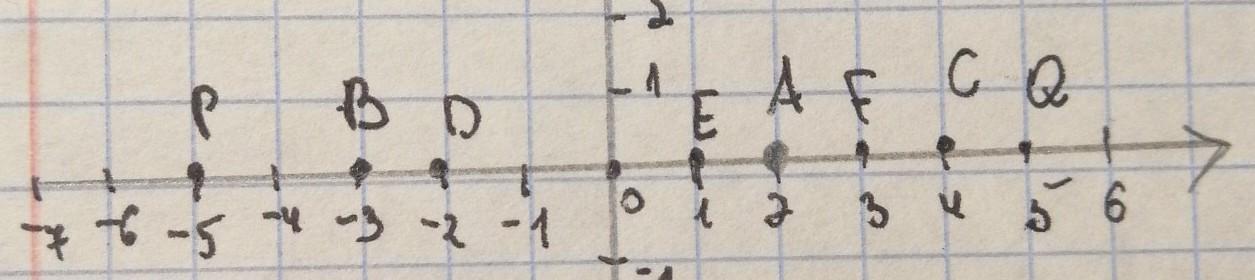 2
1
P B D E A F C Q
-7 -6 -5 -4 -3 -2 -1 0 1 2 3 4 5 6
-1